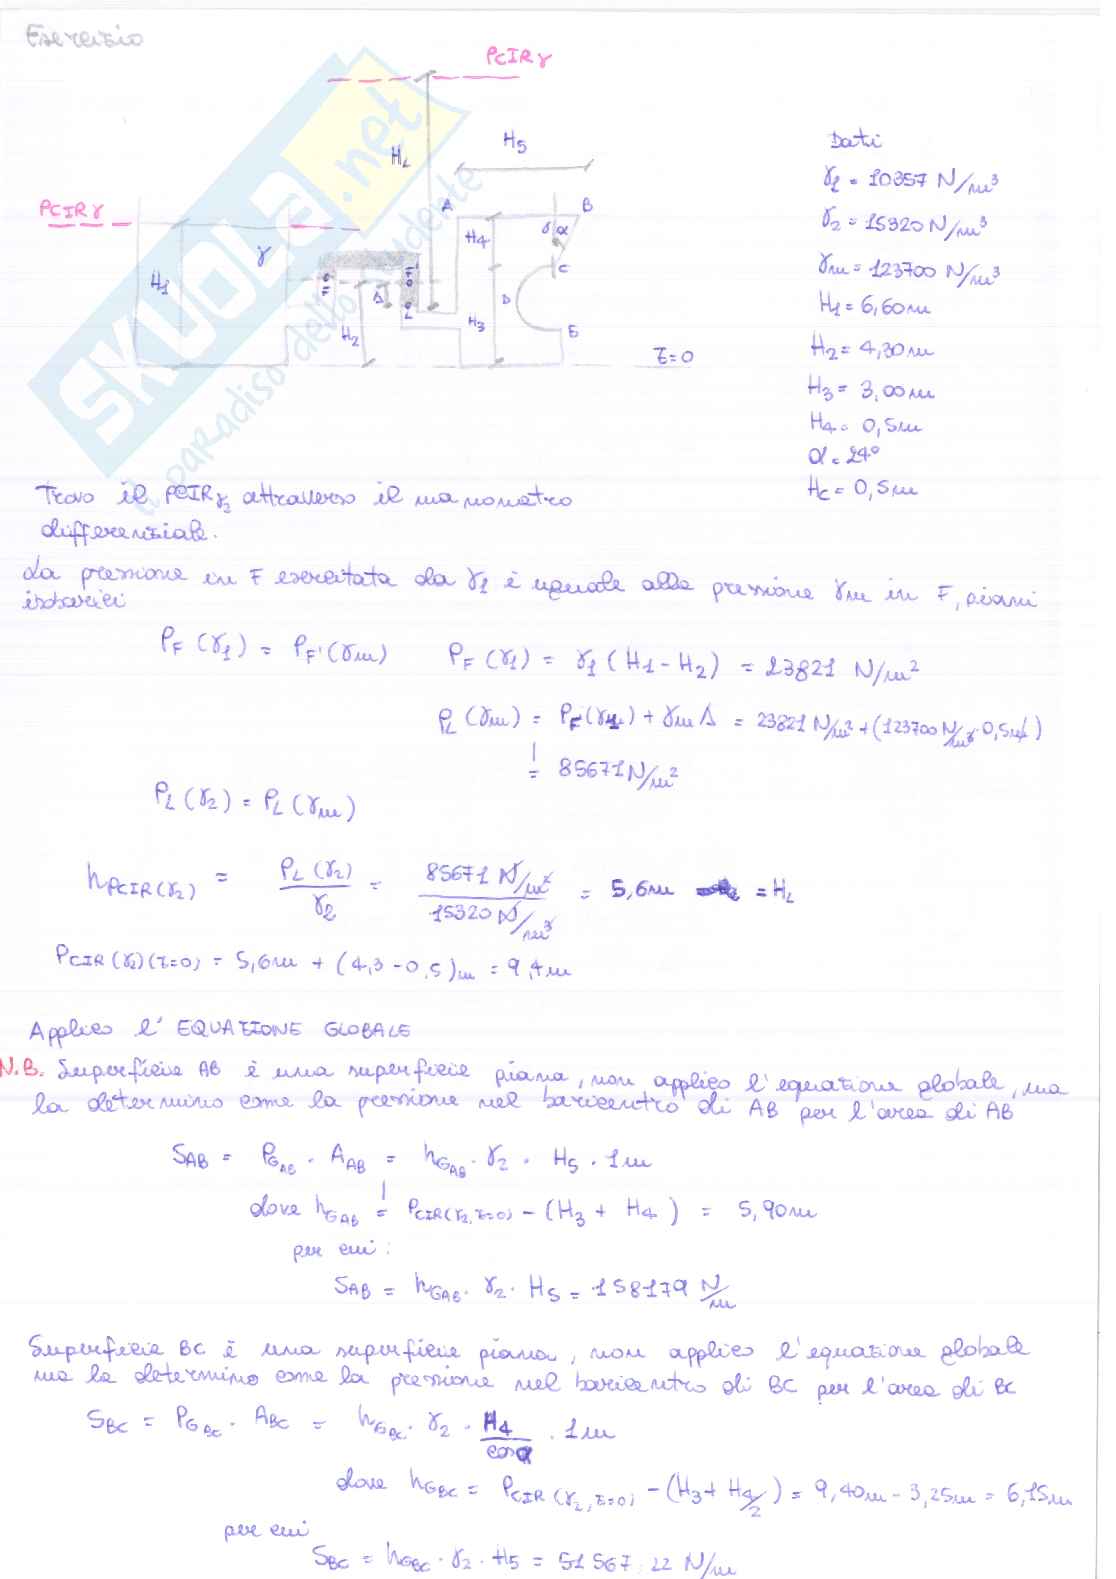 Esercizio
PCIRγ
H5
HL
PCIRγ
A
B
H4
γ
α
γ
C
H1
F
F'
Δ
D
L
H2
H3
E
z=0
SKUOLA.net
il paradiso dello studente
Dati
γ1 = 10357 N/m³
γ2 = 15320 N/m³
γm = 123700 N/m³
H1 = 6,60m
H2 = 4,30m
H3 = 3,00m
H4 = 0,5m
α = 24°
HC = 0,5m
Trovo il PCIRγ2 attraverso il manometro
differenziale.
La pressione in F esercitata da γ1 è uguale alla pressione γm in F, piani
isobarici
PF (γ1) = PF' (γm) PF (γ1) = γ1 (H1 - H2) = 23821 N/m²
PL (γm) = PF (γ1) + γm Δ = 23821 N/m³ + (123700 N/m³ · 0,5m)
= 85671 N/m²
PL (γ2) = PL (γm)
hPCIR(γ2) = PL (γ2) / γ2 = 85671 N/m² / 15320 N/m³ = 5,6m = HL
PCIR (γ2)(z=0) = 5,6m + (4,3 - 0,5)m = 9,4m
Applico l' EQUAZIONE GLOBALE
N.B. Superficie AB è una superficie piana, non applico l'equazione globale, ma
la determino come la pressione nel baricentro di AB per l'area di AB
SAB = PGAB · AAB = hGAB · γ2 · H5 · 1m
dove hGAB = PCIR(γ2, z=0) - (H3 + H4) = 5,90m
per cui :
SAB = hGAB · γ2 · H5 = 158179 N/m
Superficie BC è una superficie piana, non applico l'equazione globale
ma la determino come la pressione nel baricentro di BC per l'area di BC
SBC = PGBC · ABC = hGBC · γ2 · H4/cosα · 1m
dove hGBC = PCIR (γ2, z=0) - (H3 + H4/2) = 9,40m - 3,25m = 6,15m
per cui
SBC = hGBC · γ2 · H5 = 51567,22 N/m